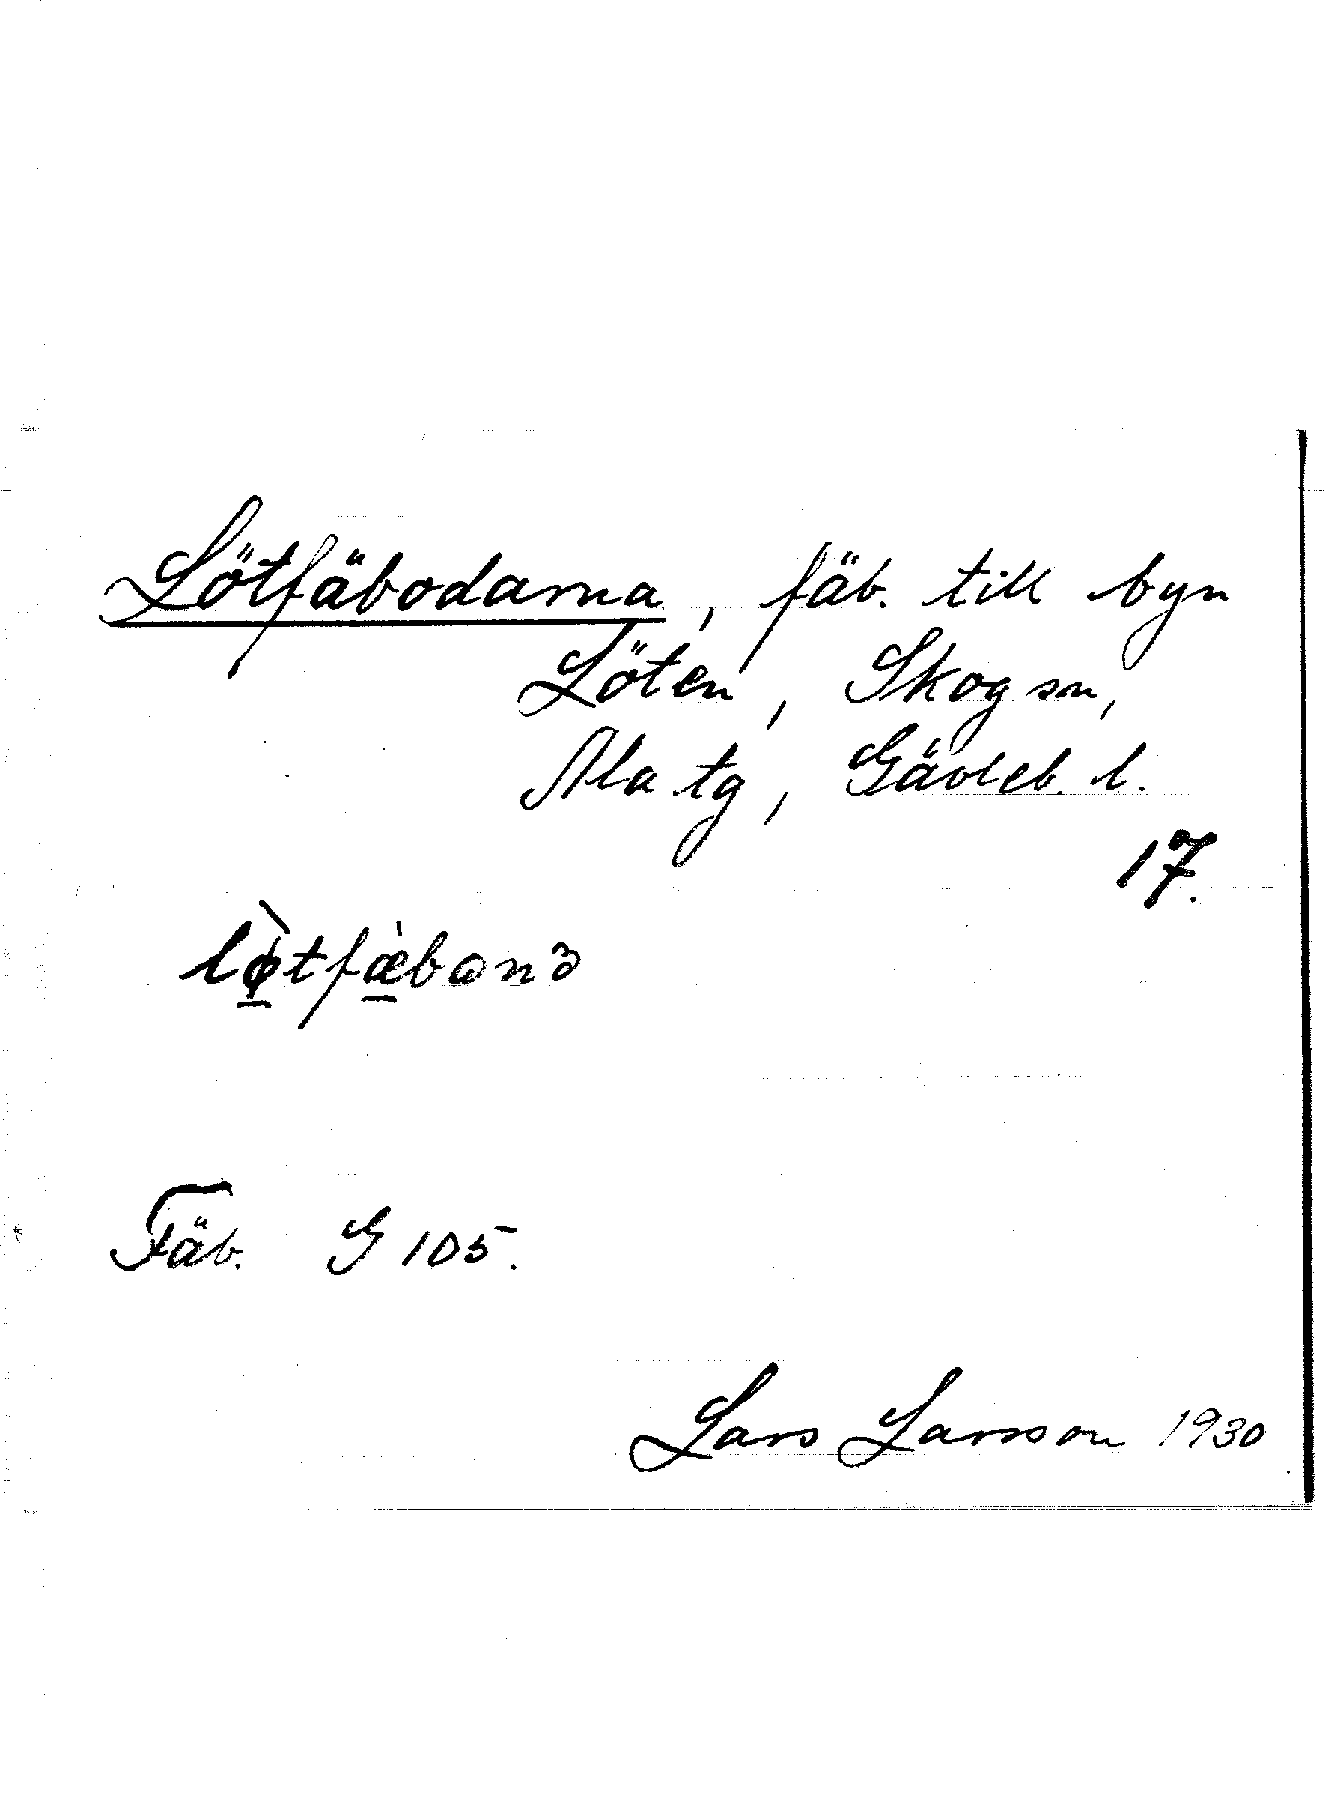 Lötfäbodarna, fäb. till byn
Löten, Skog sn,
Ala tg, Gävleb. l.
17.
lø̀tfæ̀bωnɜ
Fäb. G 105.
Lars Larsson 1930